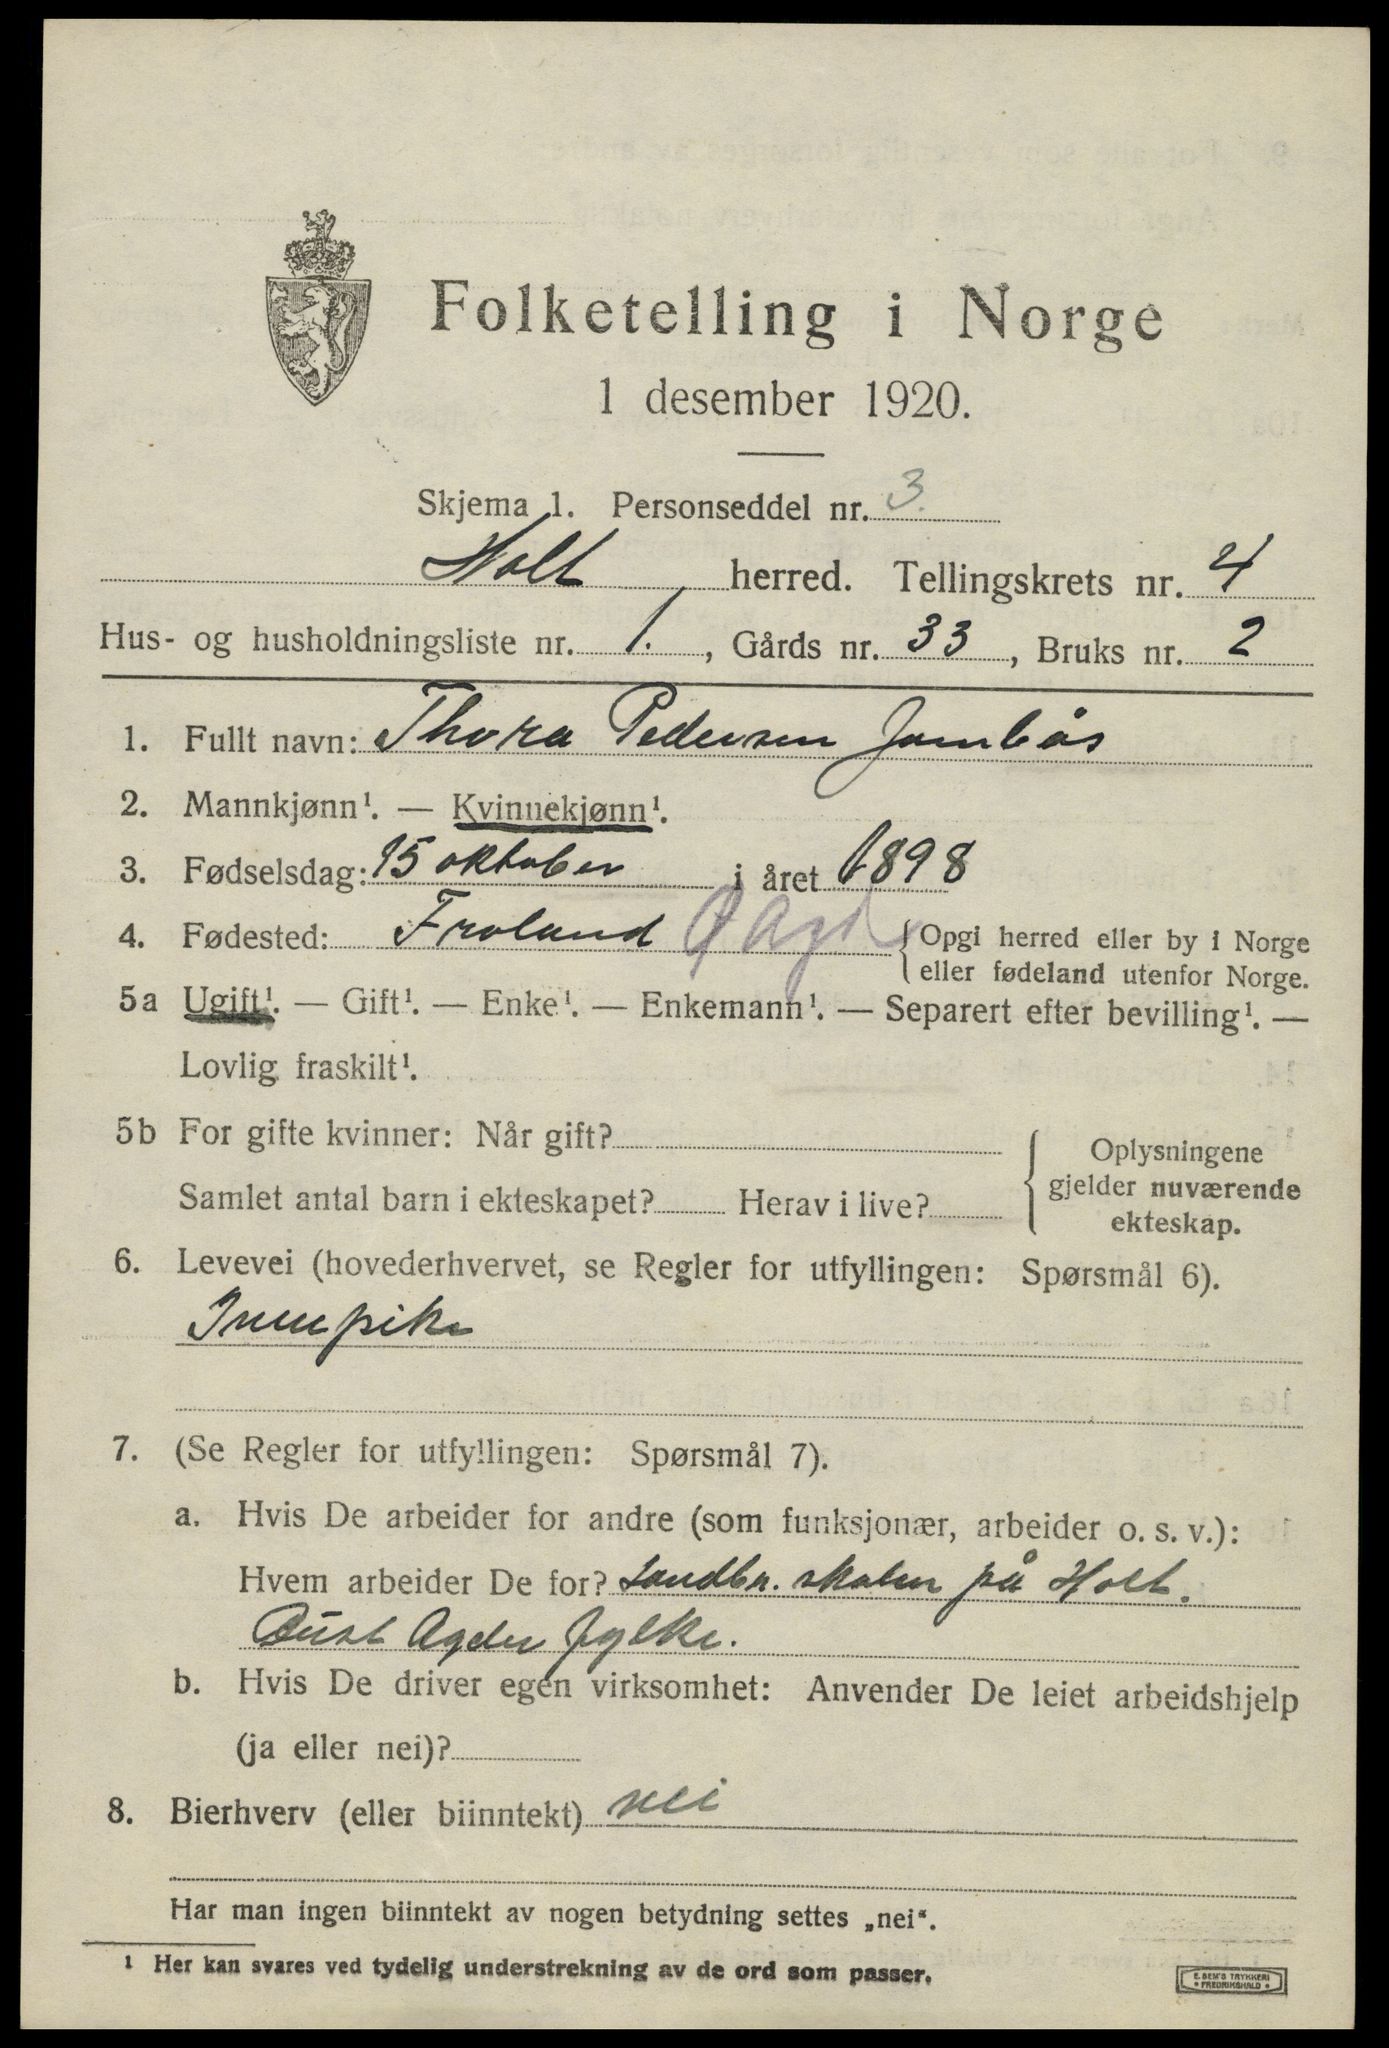 Folketelling i Norge
1 desember 1920.
Skjema 1. Personseddel nr. 3.
Holt herred. Tellingskrets nr. 4
Hus- og husholdningsliste nr. 1. , Gårds nr. 33 , Bruks nr. 2
1. Fullt navn: Thora Pedersen Jombås
2. Mannkjønn¹. — Kvinnekjønn¹.
3. Fødselsdag: 15 oktober i året 1898
4. Fødested: Froland Ø Agd { Opgi herred eller by i Norge
eller fødeland utenfor Norge.
5a Ugift¹. — Gift¹. — Enke¹. — Enkemann¹. — Separert efter bevilling¹. —
Lovlig fraskilt¹.
5b For gifte kvinner: Når gift?
Samlet antal barn i ekteskapet? Herav i live?
Oplysningene
gjelder nuværende
ekteskap.
6. Levevei (hovederhvervet, se Regler for utfyllingen: Spørsmål 6).
Innepike
7. (Se Regler for utfyllingen: Spørsmål 7).
a. Hvis De arbeider for andre (som funksjonær, arbeider o. s. v.):
Hvem arbeider De for? Landbr. skolen på Holt.
Aust Agder fylke.
b. Hvis De driver egen virksomhet: Anvender De leiet arbeidshjelp
(ja eller nei)?
8. Bierhverv (eller biinntekt) nei
Har man ingen biinntekt av nogen betydning settes „nei“.
¹ Her kan svares ved tydelig understrekning av de ord som passer.
E. SEM'S TRYKKERI
• FREDRIKSHALD •